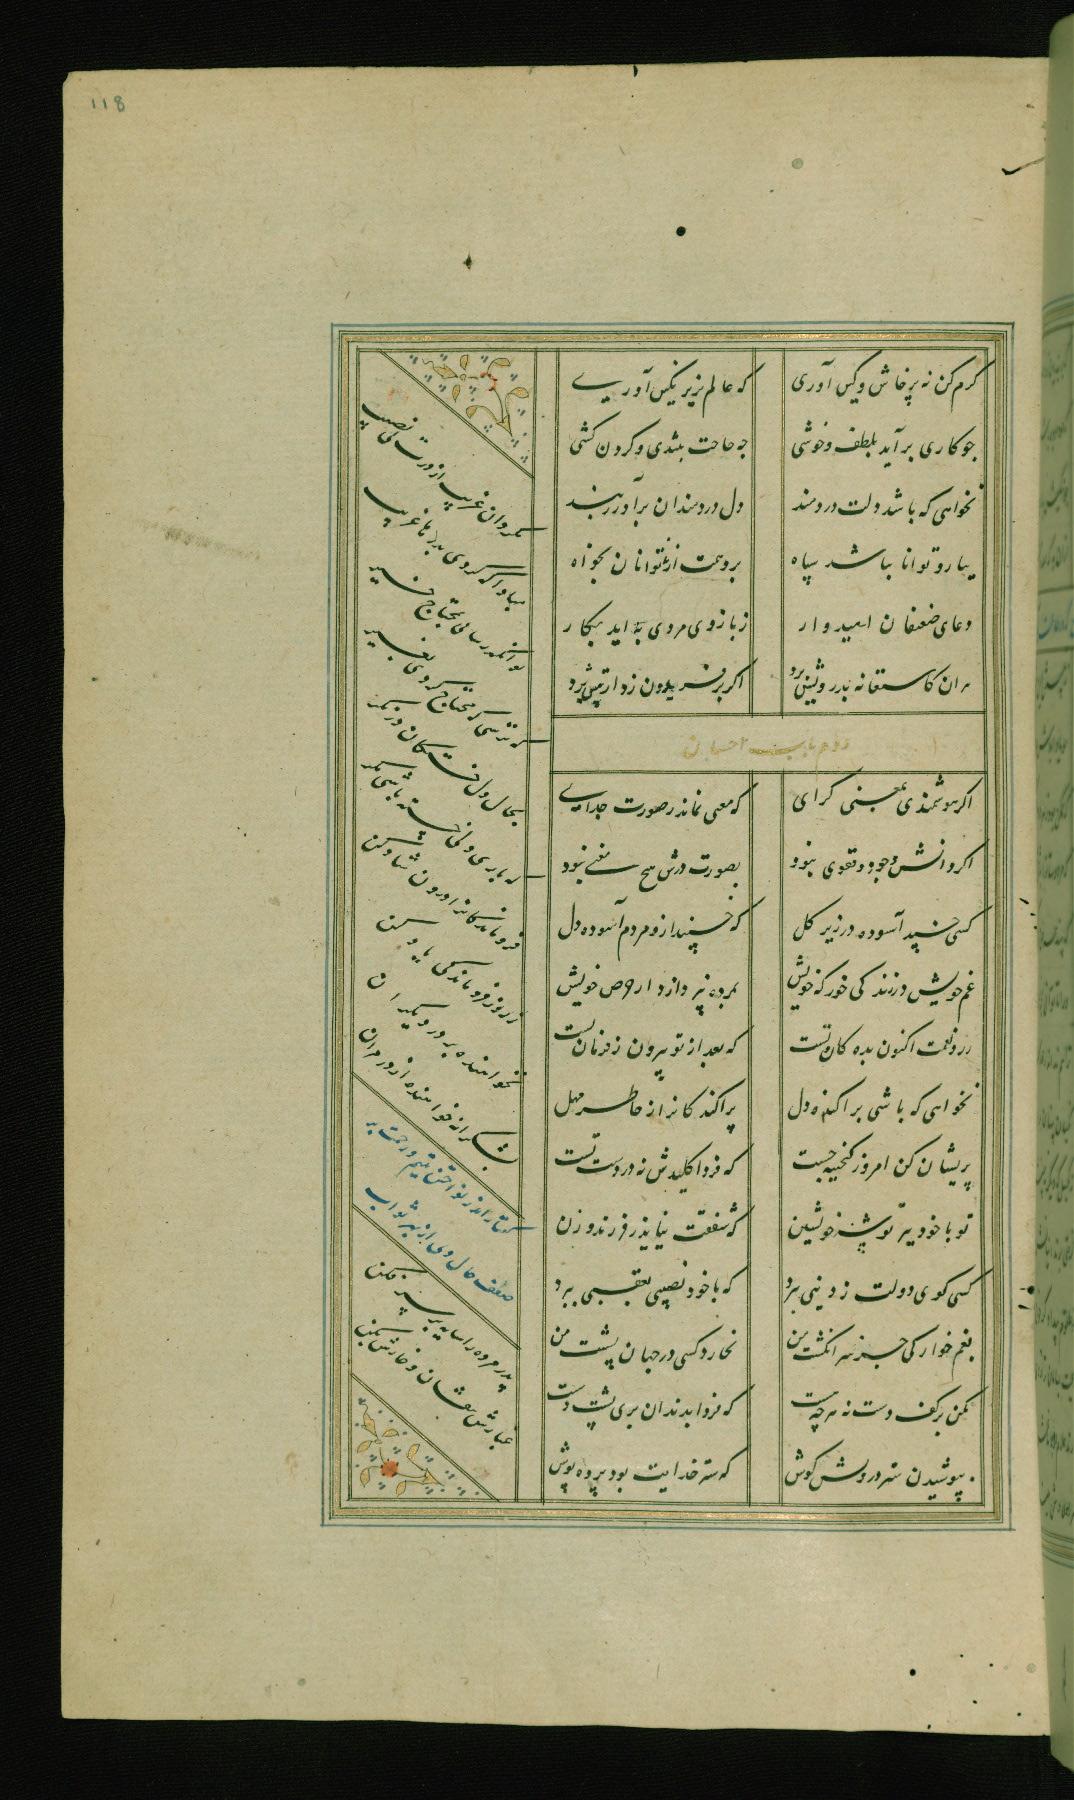 118
کرم کن نه پرخاش و کین آوری که عالم بزیر نگین آوری
چو کاری برآید بلطف و خوشی چه حاجت بتندی و کردن کشی
نخواهی که باشد دلت دردمند دل دردمندان برآور ز بند
ببازو توانا نباشد سپاه برو همت از ناتوانان بخواه
دعای ضعیفان امیدوار ز بازوی مردی به آید بکار
هر آن کاستعانه بدرویش برد اکر بر فریدون زد از پیش برد
دوم باب احسان
اکر هوشمندی بمعنی کرای که معنی نماند ز صورت بجای
اکر دانش وجود و تقوی نبود بصورت درش هیچ معنی نبود
کسی خسپد آسوده در زیر کل که خسپند ازو مردم آسوده دل
غم خویش در زندکی خور که خویش بمرده نپردازد از حرص خویش
زر و نعمت اکنون بده کان تست که بعد از تو بیرون ز فرمان تست
نخواهی که باشی پراکنده دل پراکندکانرا ز خاطر مهل
پریشان کن امروز کنجینه چست که فردا کلیدش نه در دست تست
تو با خود ببر توشه خویشتن که شفقت نیاید ز فرزند و زن
کسی کوی دولت ز دنیی برد که با خود نصیبی بعقبی برد
بغم خوارکی جز سر انکشت من نخارد کسی در جهان پشت من
مکن بر کف دست نه هر چه هست که فردا بدندان بری پشت دست
بپوشیدن ستر درویش کوش که ستر خدایت بود پرده پوش
مکردان غریب از درت بی نصیب
مبادا که کردی بدرها غریب
توانکر رساند بمحتاج خیر
که ترسد که محتاج کردد بغیر
بحال دل خستکان در نکر
که باری دلی خسته باشی مکر
فروماندکانرا درون شاد کن
ز روز فروماندکی یاد کن
نخواهنده بر در دیکران
بشکرانه خواهنده از در مران
کفتار اندر نواختن یتیم و رحمت بر
ضعف حال وی از بهر ثواب
پدر مرده را سایه بر سر فکن
غبارش بیفشان و خارش بکن